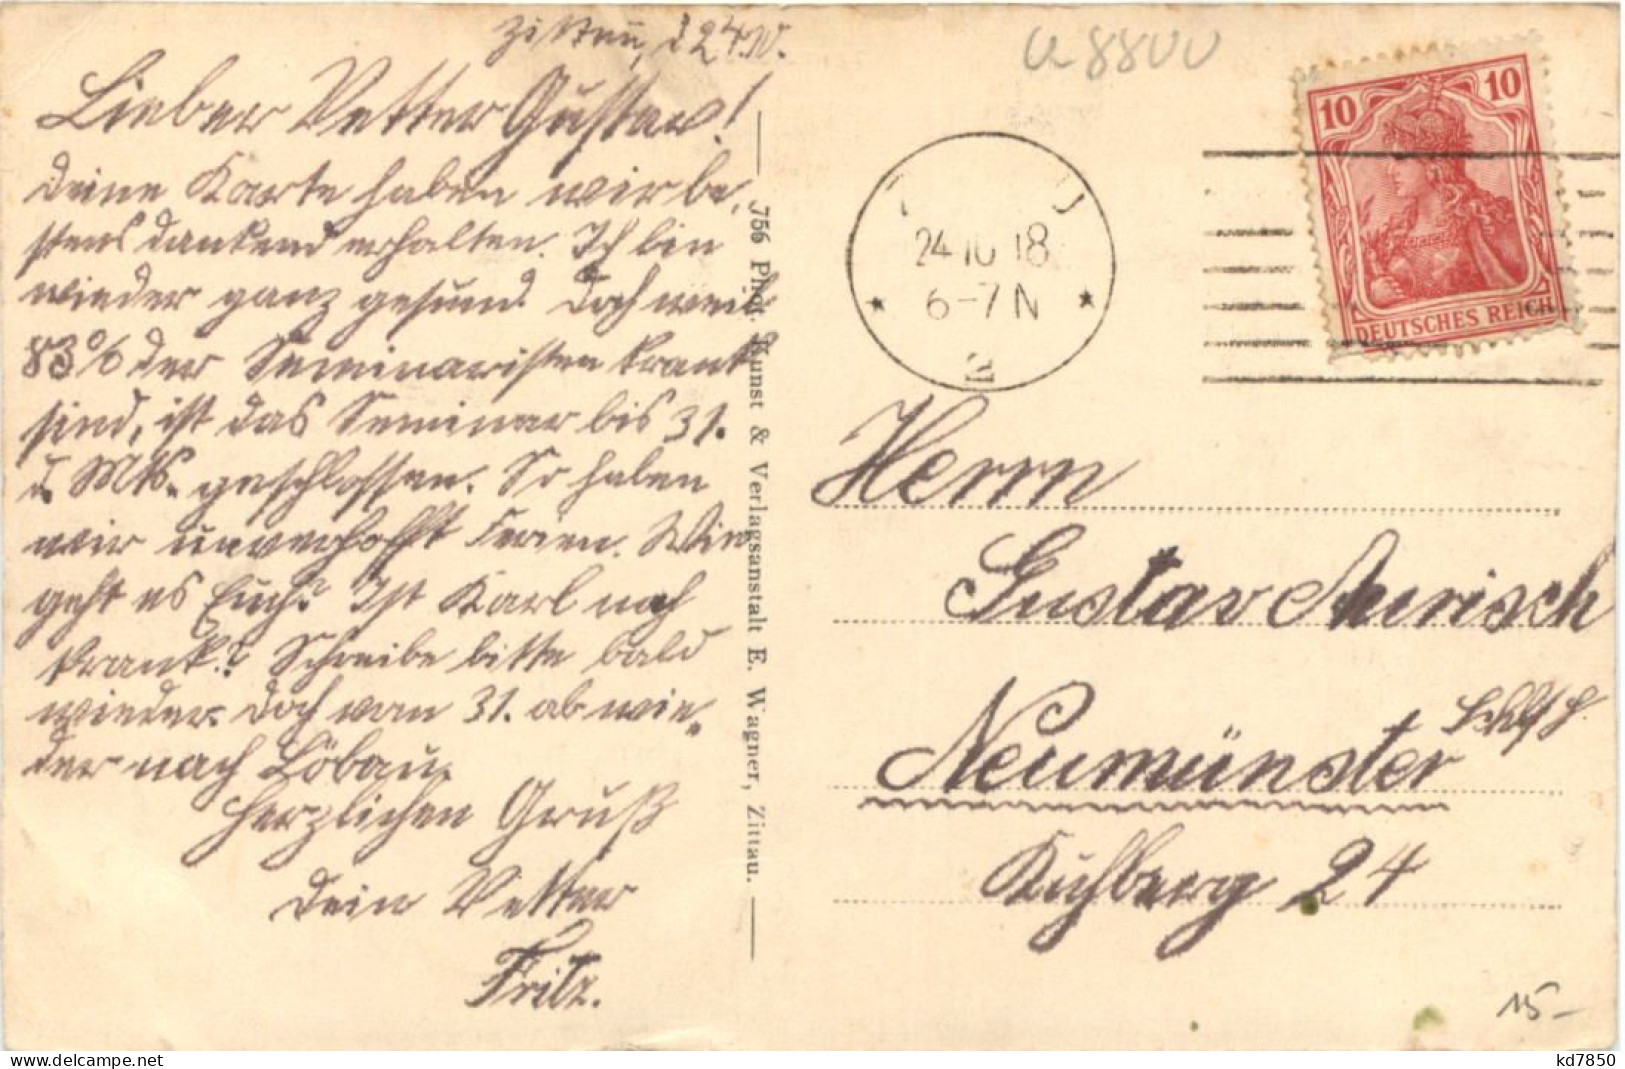 Zittau, d. 24. 10.
Lieber Vetter Gustav!
Deine Karte haben wir be-
stens dankend erhalten. Ich bin
wieder ganz gesund. Doch weil
83% der Seminaristen krank
sind, ist das Seminar bis 31.
d. Mts. geschlossen. So haben
wir unverhofft Ferien. Wie
geht es Euch? Ist Karl noch
krank? Schreibe bitte bald
wieder. Doch vom 31. ab wie-
der nach Löbau.
Herzlichen Gruß
Dein Vetter
Fritz.
756 Phot. Kunst & Verlagsanstalt E. Wagner, Zittau.
24 10 18
6-7 N
10 10
DEUTSCHES REICH
Herrn
Gustav
Neumünster
Kuhberg 24
15-
kd7850